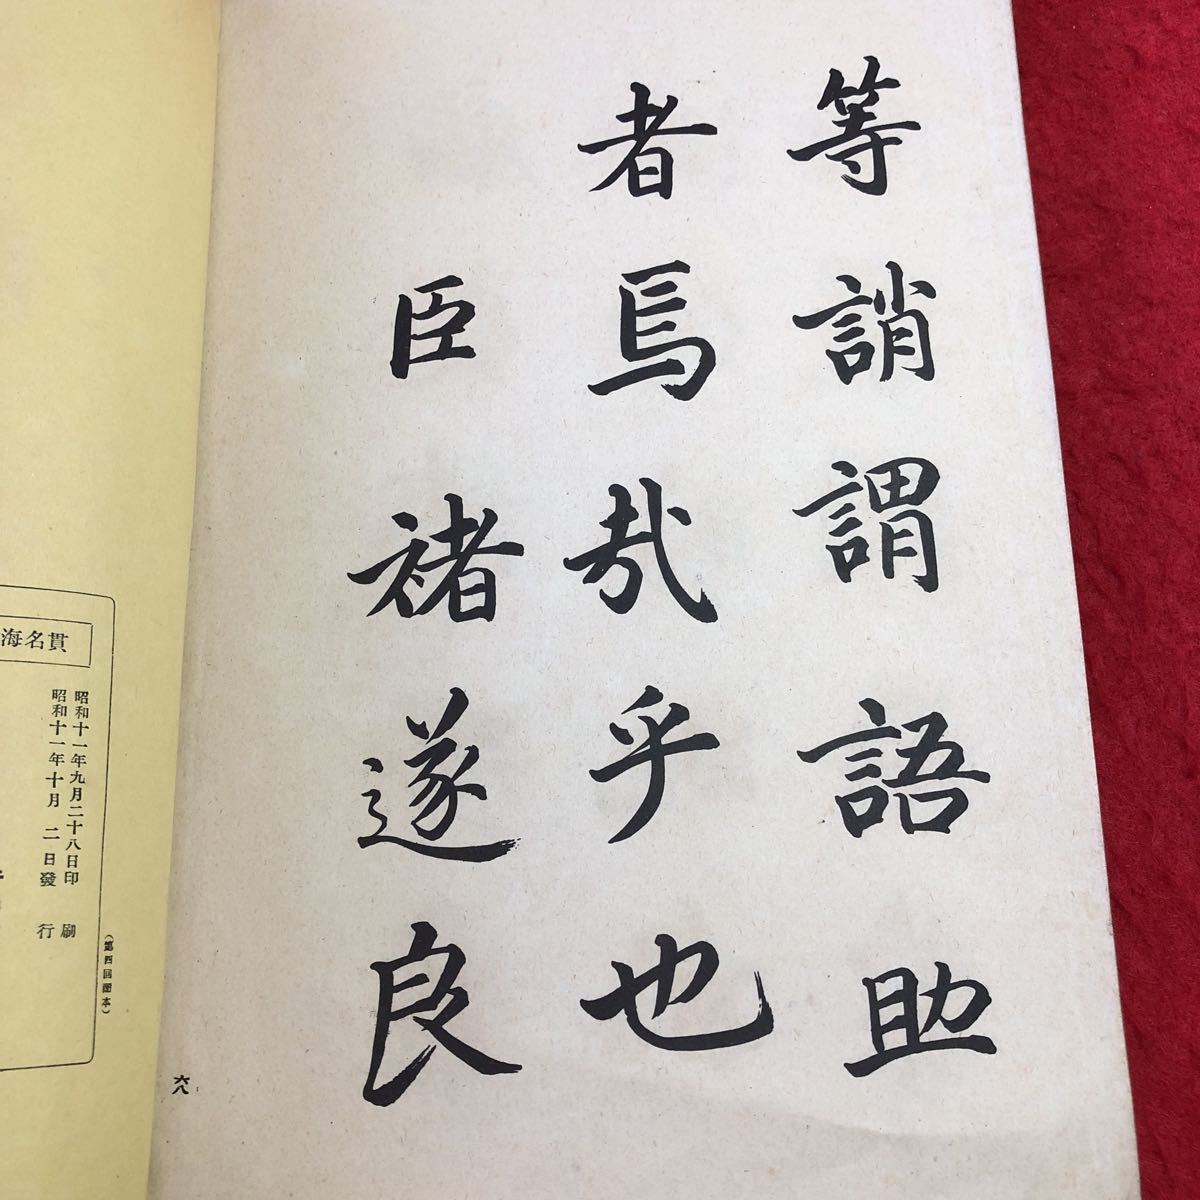 等誚謂語助
者焉哉乎也
臣褚遂良
六八
貫名海
昭和十一年九月二十八日印刷
昭和十一年十月二日發行
(第四回圖本)